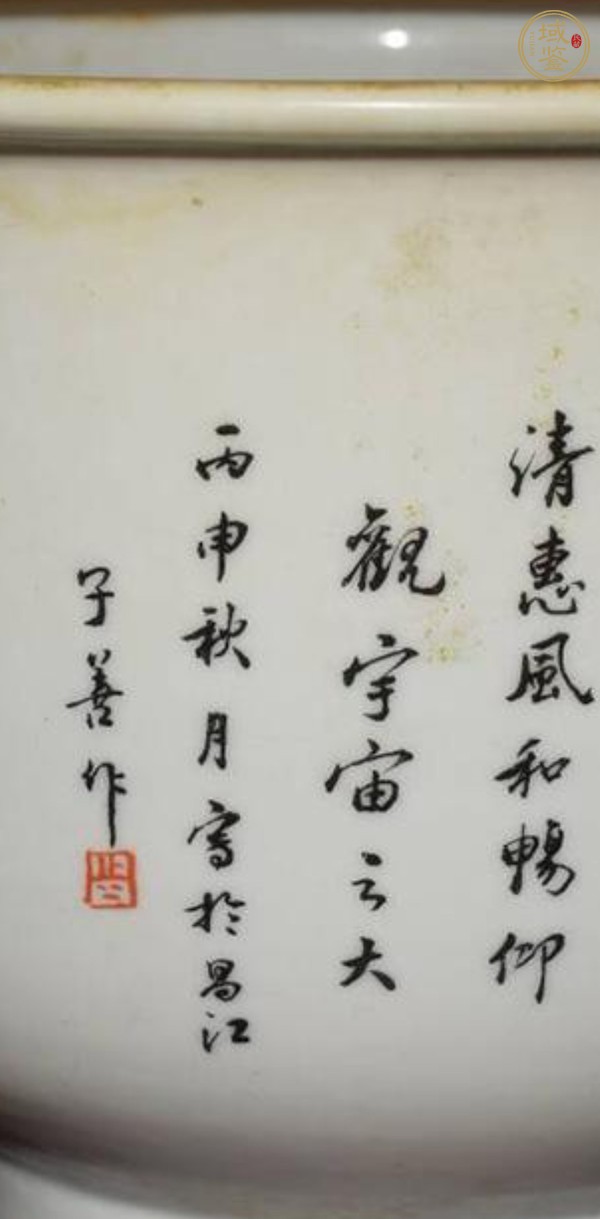 清惠風和暢仰
觀宇宙之大
丙申秋月寫於昌江
子善作
域鉴